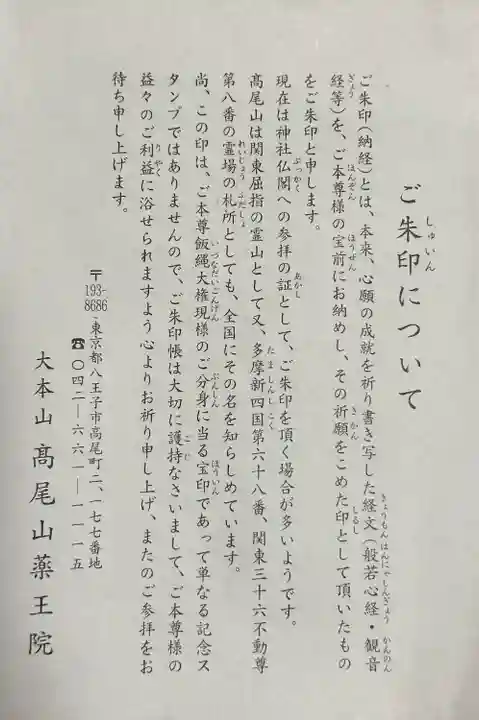 ご朱印について
ご朱印(納経)とは、本来、心願の成就を祈り書き写した経文(般若心経・観音
経等)を、ご本尊様の宝前にお納めし、その祈願をこめた印として頂いたもの
をご朱印と申します。
現在は神社仏閣への参拝の証として、ご朱印を頂く場合が多いようです。
髙尾山は関東屈指の霊山として又、多摩新四国第六十八番、関東三十六不動尊
第八番の霊場の札所としても、全国にその名を知らしめています。
尚、この印は、ご本尊飯縄大権現様のご分身に当る宝印であって単なる記念ス
タンプではありませんので、ご朱印帳は大切に護持なさいまして、ご本尊様の
益々のご利益に浴せられますよう心よりお祈り申し上げ、またのご参拝をお
待ち申し上げます。
〒193-8686 東京都八王子市高尾町二、一七七番地
☎〇四二―六六一―一一一五
大本山 髙尾山薬王院